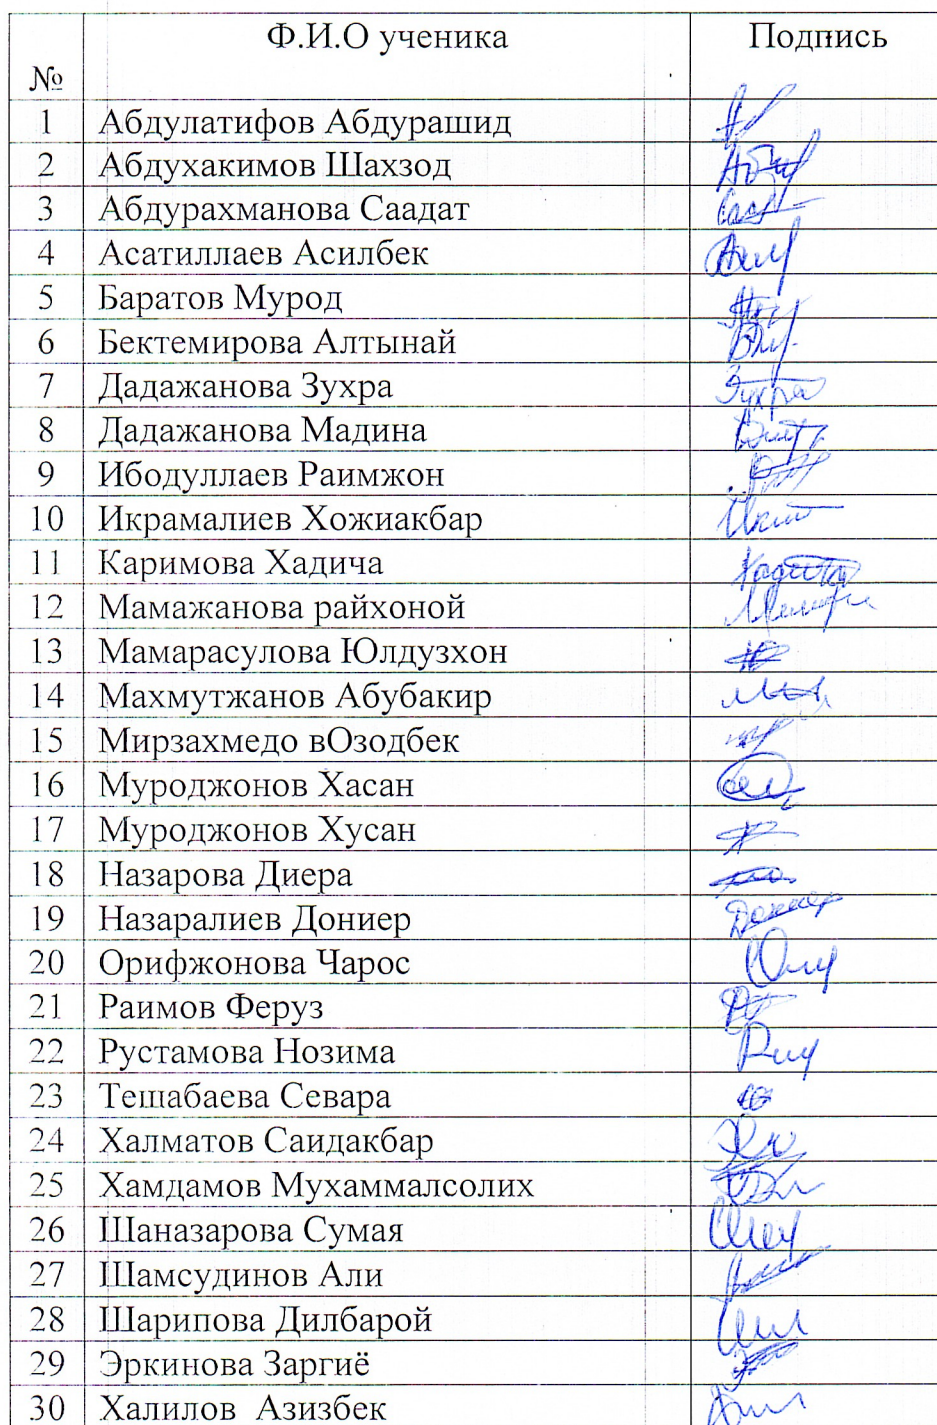 Ф.И.О ученика Подпись
№
1 Абдулатифов Абдурашид
2 Абдухакимов Шахзод
3 Абдурахманова Саадат
4 Асатиллаев Асилбек
5 Баратов Мурод
6 Бектемирова Алтынай
7 Дадажанова Зухра Зухра
8 Дадажанова Мадина
9 Ибодуллаев Раимжон
10 Икрамалиев Хожиакбар
11 Каримова Хадича
12 Мамажанова райхоной
13 Мамарасулова Юлдузхон
14 Махмутжанов Абубакир
15 Мирзахмедо вОзодбек
16 Муроджонов Хасан
17 Муроджонов Хусан
18 Назарова Диера
19 Назаралиев Дониер Дониер
20 Орифжонова Чарос
21 Раимов Феруз
22 Рустамова Нозима
23 Тешабаева Севара
24 Халматов Саидакбар
25 Хамдамов Мухаммалсолих
26 Шаназарова Сумая
27 Шамсудинов Али
28 Шарипова Дилбарой
29 Эркинова Заргиё
30 Халилов Азизбек